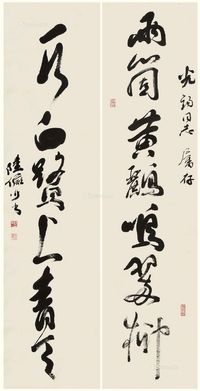 光钧同志属存
兩箇黃鸝鳴翠柳
一行白鷺上青天
陸儼少書